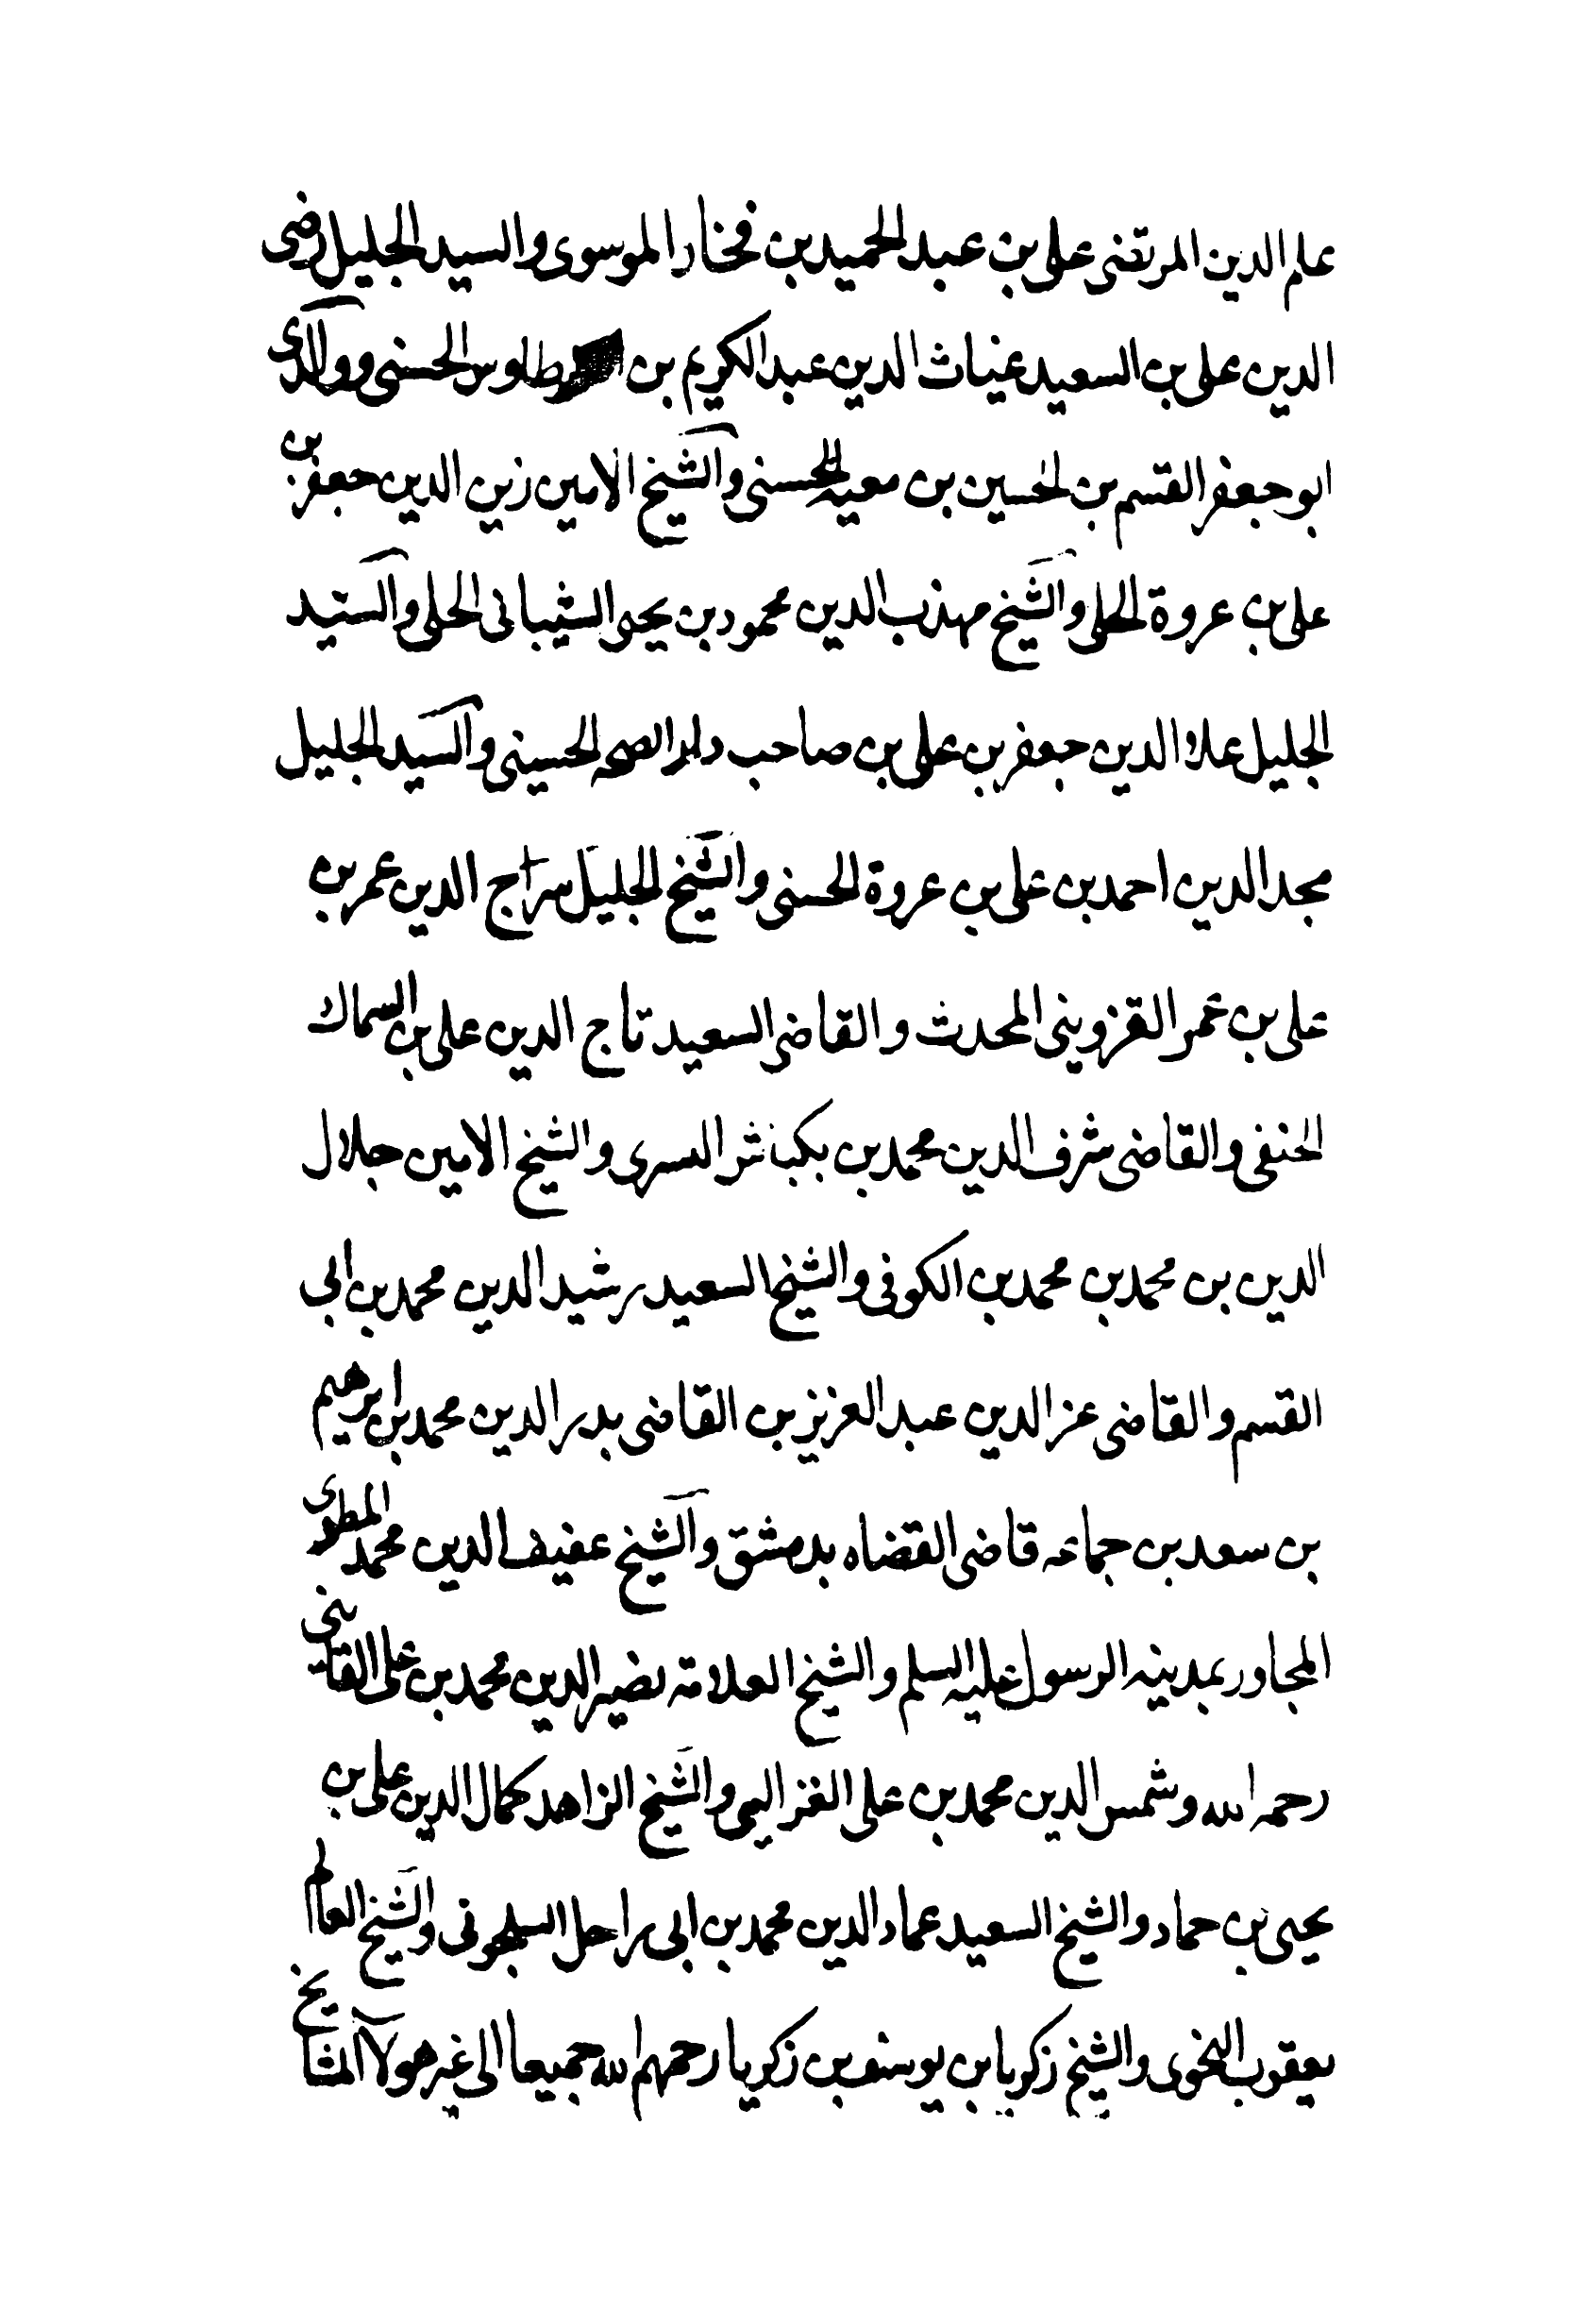 علم الدين المرتضى على بن عبد الحميد بن فخار الموسوى والسيد الجليل رضى
الدين على بن السعيد غياث الدين عبد الكريم بن طاوس الحسنى ووالدى
ابو جعفر القسم بن الحسين بن معيه الحسنى والشيخ الامين زين الدين جعفر بن
على بن عروة الحلى والشيخ مهذب الدين محمود بن يحيى الشيبانى الحلى والسيد
الجليل علا الدين جعفر بن على بن صاحب دار الصخر الحسينى والسيد الجليل
مجد الدين احمد بن على بن عروة الحسنى والشيخ الجليل سراج الدين عمر بن
على بن عمر القزوينى المحدث والقاضى السعيد تاج الدين على بن السماك
الحنفى والقاضى شرف الدين محمد بن بكتاش السرى والشيخ الامين جلال
الدين بن محمد بن محمد بن الكوفى والشيخ السعيد رشيد الدين محمد بن ابى
القسم والقاضى عز الدين عبد العزيز بن القاضى بدر الدين محمد بن ابرهيم
بن سعد بن جماعه قاضى القضاه بدمشق والشيخ عفيف الدين محمد المطرى
المجاور بمدينه الرسول عليه السلم والشيخ العلامة نصير الدين محمد بن على القاينى
رحمه الله وشمس الدين محمد بن على الغزالى والشيخ الزاهد كمال الدين على بن
يحيى بن حماد والشيخ السعيد عماد الدين محمد بن ابى راحل والشيخ العالم
يعقوب النحوى والشيخ زكريا بن يوسف بن زكريا رحمهم الله جميعا الى غير هولآ المشايخ